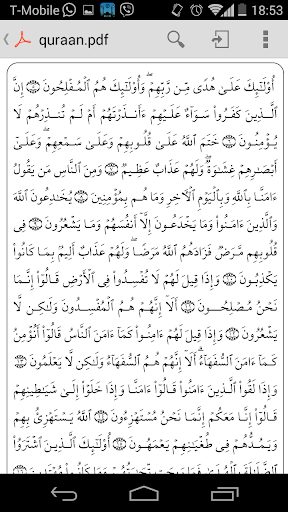 T-Mobile 18:53
quraan.pdf
أُوْلَـٰٓئِكَ عَلَىٰ هُدًى مِّن رَّبِّهِمْ ۖ وَأُوْلَـٰٓئِكَ هُمُ ٱلْمُفْلِحُونَ إِنَّ
ٱلَّذِينَ كَفَرُواْ سَوَآءٌ عَلَيْهِمْ ءَأَنذَرْتَهُمْ أَمْ لَمْ تُنذِرْهُمْ لَا
يُؤْمِنُونَ خَتَمَ ٱللَّهُ عَلَىٰ قُلُوبِهِمْ وَعَلَىٰ سَمْعِهِمْ ۖ وَعَلَىٰٓ
أَبْصَـٰرِهِمْ غِشَـٰوَةٌ ۖ وَلَهُمْ عَذَابٌ عَظِيمٌ وَمِنَ ٱلنَّاسِ مَن يَقُولُ
ءَامَنَّا بِٱللَّهِ وَبِٱلْيَوْمِ ٱلْـَٔاخِرِ وَمَا هُم بِمُؤْمِنِينَ يُخَـٰدِعُونَ ٱللَّهَ
وَٱلَّذِينَ ءَامَنُواْ وَمَا يَخْدَعُونَ إِلَّآ أَنفُسَهُمْ وَمَا يَشْعُرُونَ فِى
قُلُوبِهِم مَّرَضٌ فَزَادَهُمُ ٱللَّهُ مَرَضًا ۖ وَلَهُمْ عَذَابٌ أَلِيمٌۢ بِمَا كَانُواْ
يَكْذِبُونَ وَإِذَا قِيلَ لَهُمْ لَا تُفْسِدُواْ فِى ٱلْأَرْضِ قَالُوٓاْ إِنَّمَا
نَحْنُ مُصْلِحُونَ أَلَآ إِنَّهُمْ هُمُ ٱلْمُفْسِدُونَ وَلَـٰكِن لَّا
يَشْعُرُونَ وَإِذَا قِيلَ لَهُمْ ءَامِنُواْ كَمَآ ءَامَنَ ٱلنَّاسُ قَالُوٓاْ أَنُؤْمِنُ
كَمَآ ءَامَنَ ٱلسُّفَهَآءُ ۗ أَلَآ إِنَّهُمْ هُمُ ٱلسُّفَهَآءُ وَلَـٰكِن لَّا يَعْلَمُونَ
وَإِذَا لَقُواْ ٱلَّذِينَ ءَامَنُواْ قَالُوٓاْ ءَامَنَّا وَإِذَا خَلَوْاْ إِلَىٰ شَيَـٰطِينِهِمْ
قَالُوٓاْ إِنَّا مَعَكُمْ إِنَّمَا نَحْنُ مُسْتَهْزِءُونَ ٱللَّهُ يَسْتَهْزِئُ بِهِمْ
وَيَمُدُّهُمْ فِى طُغْيَـٰنِهِمْ يَعْمَهُونَ أُوْلَـٰٓئِكَ ٱلَّذِينَ ٱشْتَرَوُاْ